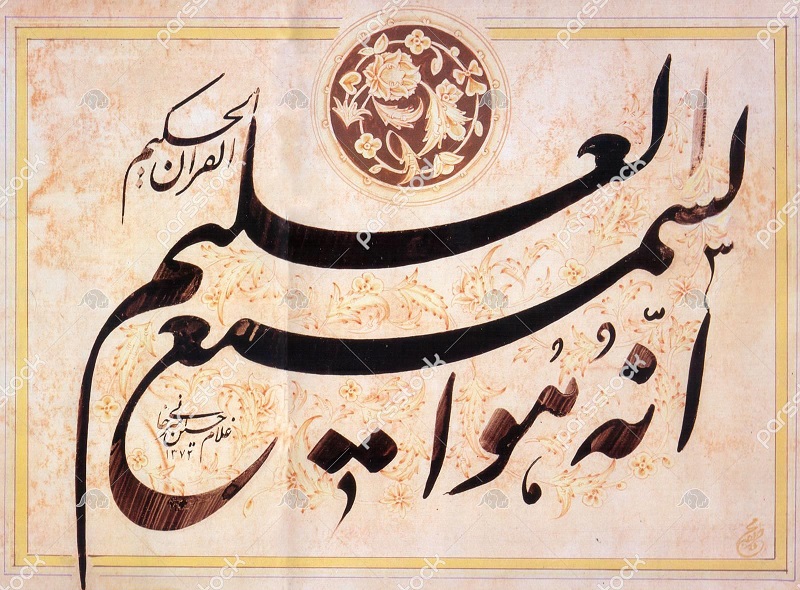 انّه هو السمیع العلیم
القرآن الحکیم
غلامحسین امیرخانی
۱۳۷۳
parsstock